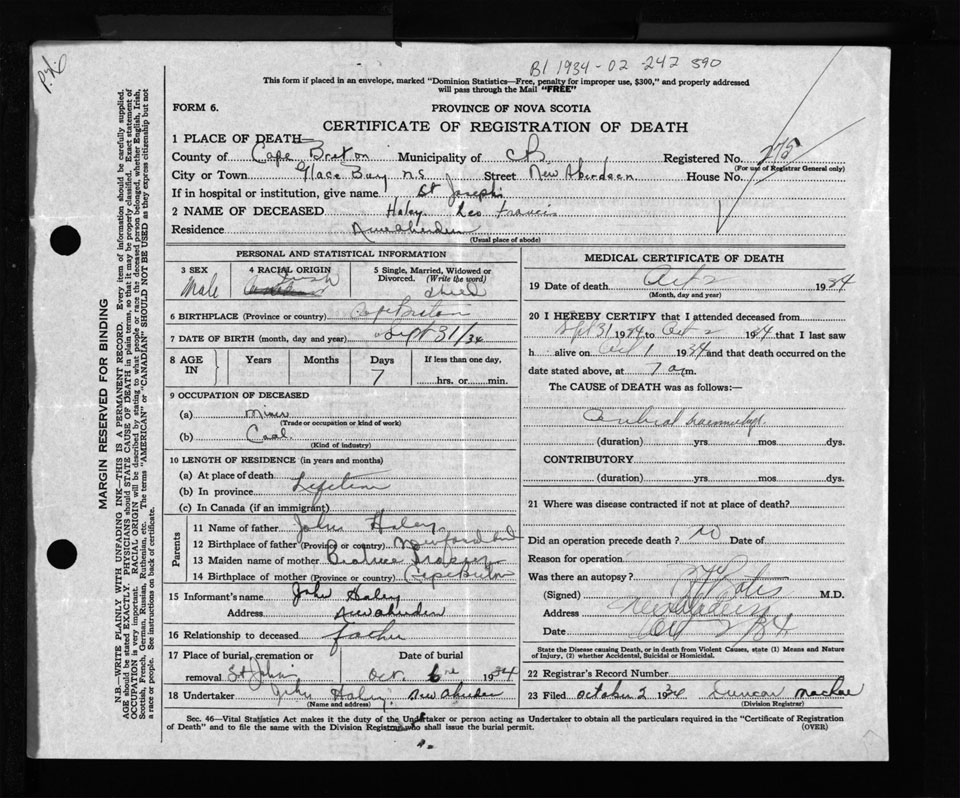 B1 1934-02-242 590
This form if placed in an envelope, marked "Dominion Statistics—Free, penalty for improper use, $300," and properly addressed
will pass through the Mail "FREE"
FORM 6.
PROVINCE OF NOVA SCOTIA
CERTIFICATE OF REGISTRATION OF DEATH
1 PLACE OF DEATH—
County of Cape Breton Municipality of CB Registered No. 275
(For use of Registrar General only)
City or Town Glace Bay N.S Street New Aberdeen House No.
If in hospital or institution, give name St Joseph
2 NAME OF DECEASED Haley Leo Francis
Residence New Aberdeen
(Usual place of abode)
MARGIN RESERVED FOR BINDING
N.B.—WRITE PLAINLY WITH UNFADING INK—THIS IS A PERMANENT RECORD. Every item of information should be carefully supplied.
AGE should be stated EXACTLY. PHYSICIANS should STATE CAUSE OF DEATH in plain terms, so that it may be properly classified. Exact statement of
OCCUPATION is very important. RACIAL ORIGIN will be described by stating to what people or race the deceased person belonged, whether English, Irish,
Scottish, French, German, Russian, Ruthenian, etc. The terms "AMERICAN" or "CANADIAN" SHOULD NOT BE USED as they express citizenship but not
a race or people. See instructions on back of certificate.
PERSONAL AND STATISTICAL INFORMATION
3 SEX
Male
4 RACIAL ORIGIN
Irish
5 Single, Married, Widowed or
Divorced. (Write the word)
child
6 BIRTHPLACE (Province or country) Cape Breton
7 DATE OF BIRTH (month, day and year) Sept 31/34
8 AGE
IN
Years
Months
Days
7
If less than one day,
hrs. or min.
9 OCCUPATION OF DECEASED
(a) Miner
(Trade or occupation or kind of work)
(b) Coal
(Kind of industry)
10 LENGTH OF RESIDENCE (in years and months)
(a) At place of death
(b) In province Lifetime
(c) In Canada (if an immigrant)
Parents
11 Name of father John Haley
12 Birthplace of father (Province or country) Newfoundland
13 Maiden name of mother Beatrice
14 Birthplace of mother (Province or country) Cape Breton
15 Informant's name John Haley
Address New Aberdeen
16 Relationship to deceased father
17 Place of burial, cremation or
removal St John's
Date of burial
Oct 1934
18 Undertaker John Haley New Aberdeen
(Name and address)
MEDICAL CERTIFICATE OF DEATH
19 Date of death Oct 2 1934
(Month, day and year)
20 I HEREBY CERTIFY that I attended deceased from
Sept 31 1934 to Oct 2 1934 that I last saw
h alive on Oct 1 1934 and that death occurred on the
date stated above, at 7 a m.
The CAUSE of DEATH was as follows:—
Cerebral haemorrhage
(duration) yrs. mos. dys.
CONTRIBUTORY
(duration) yrs. mos. dys.
21 Where was disease contracted if not at place of death?
Did an operation precede death? no Date of
Reason for operation
Was there an autopsy?
(Signed) M.D.
Address New Aberdeen
Date Oct 2/34
State the Disease causing Death, or in death from Violent Causes, state (1) Means and Nature
of Injury, (2) whether Accidental, Suicidal or Homicidal.
22 Registrar's Record Number
23 Filed October 2 1934 Duncan MacRae
(Division Registrar)
Sec. 46—Vital Statistics Act makes it the duty of the Undertaker or person acting as Undertaker to obtain all the particulars required in the "Certificate of Registration
of Death" and to file the same with the Division Registrar who shall issue the burial permit. (OVER)